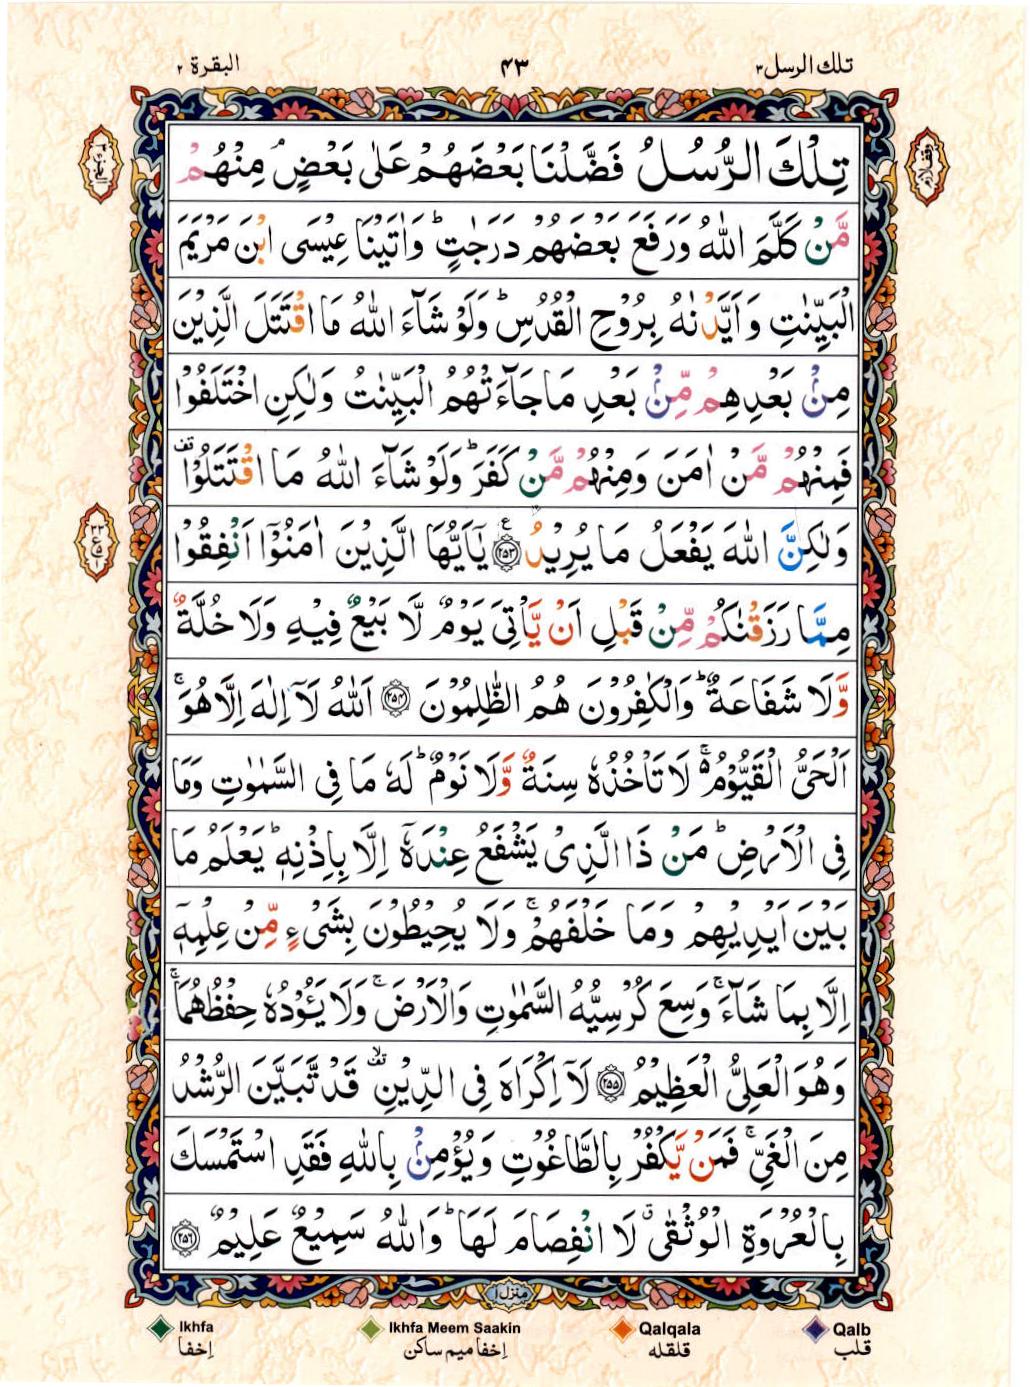 تلك الرسل ٣
۴۳
البقرة ٢
وقف لازم
الجزء ٣
تِلْكَ الرُّسُلُ فَضَّلْنَا بَعْضَهُمْ عَلٰى بَعْضٍ ۘ مِنْهُمْ
مَّنْ كَلَّمَ اللّٰهُ وَرَفَعَ بَعْضَهُمْ دَرَجٰتٍ ؕ وَاٰتَيْنَا عِيْسَى ابْنَ مَرْيَمَ
الْبَيِّنٰتِ وَاَيَّدْنٰهُ بِرُوْحِ الْقُدُسِ ؕ وَلَوْ شَآءَ اللّٰهُ مَا اقْتَتَلَ الَّذِيْنَ
مِنْۢ بَعْدِهِمْ مِّنْۢ بَعْدِ مَا جَآءَتْهُمُ الْبَيِّنٰتُ وَلٰكِنِ اخْتَلَفُوْا
فَمِنْهُمْ مَّنْ اٰمَنَ وَمِنْهُمْ مَّنْ كَفَرَ ؕ وَلَوْ شَآءَ اللّٰهُ مَا اقْتَتَلُوْا قف
وَلٰكِنَّ اللّٰهَ يَفْعَلُ مَا يُرِيْدُ ﴿۲۵۳﴾ ع يٰٓاَيُّهَا الَّذِيْنَ اٰمَنُوْۤا اَنْفِقُوْا
مِمَّا رَزَقْنٰكُمْ مِّنْ قَبْلِ اَنْ يَّاْتِىَ يَوْمٌ لَّا بَيْعٌ فِيْهِ وَلَا خُلَّةٌ
وَّلَا شَفَاعَةٌ ؕ وَالْكٰفِرُوْنَ هُمُ الظّٰلِمُوْنَ ﴿۲۵۴﴾ اَللّٰهُ لَاۤ اِلٰهَ اِلَّا هُوَ ۚ
اَلْحَىُّ الْقَيُّوْمُ ۚ۬ لَا تَاْخُذُهٗ سِنَةٌ وَّلَا نَوْمٌ ؕ لَهٗ مَا فِى السَّمٰوٰتِ وَمَا
فِى الْاَرْضِ ؕ مَنْ ذَا الَّذِىْ يَشْفَعُ عِنْدَهٗۤ اِلَّا بِاِذْنِهٖ ؕ يَعْلَمُ مَا
بَيْنَ اَيْدِيْهِمْ وَمَا خَلْفَهُمْ ۚ وَلَا يُحِيْطُوْنَ بِشَىْءٍ مِّنْ عِلْمِهٖۤ
اِلَّا بِمَا شَآءَ ۚ وَسِعَ كُرْسِيُّهُ السَّمٰوٰتِ وَالْاَرْضَ ۚ وَلَا يَـُٔوْدُهٗ حِفْظُهُمَا ۚ
وَهُوَ الْعَلِىُّ الْعَظِيْمُ ﴿۲۵۵﴾ لَاۤ اِكْرَاهَ فِى الدِّيْنِ ۙ قف قَدْ تَّبَيَّنَ الرُّشْدُ
مِنَ الْغَىِّ ۚ فَمَنْ يَّكْفُرْ بِالطَّاغُوْتِ وَيُؤْمِنْۢ بِاللّٰهِ فَقَدِ اسْتَمْسَكَ
بِالْعُرْوَةِ الْوُثْقٰى ۗ لَا انْفِصَامَ لَهَا ؕ وَاللّٰهُ سَمِيْعٌ عَلِيْمٌ ﴿۲۵۶﴾
منزل ١
Ikhfa
Ikhfa Meem Saakin
Qalqala
Qalb
إخفا
إخفا ميم ساكن
قلقله
قلب